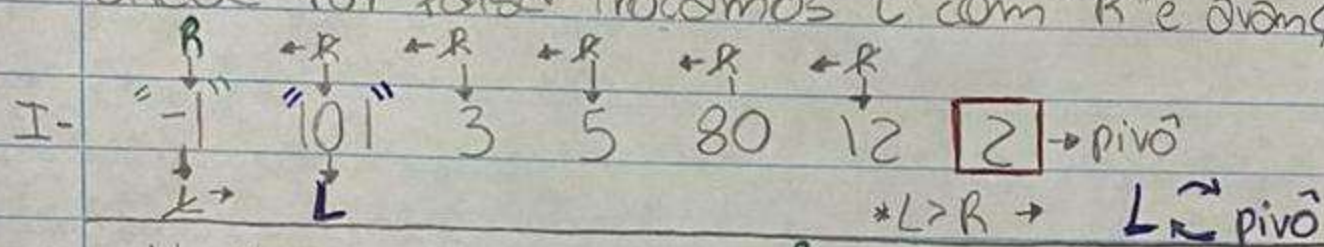 trocamos L com R e avanç
R ←R ←R ←R ←R ←R
I- "-1" "101" 3 5 80 12 2 → pivô
L→ L *L>R → L pivô